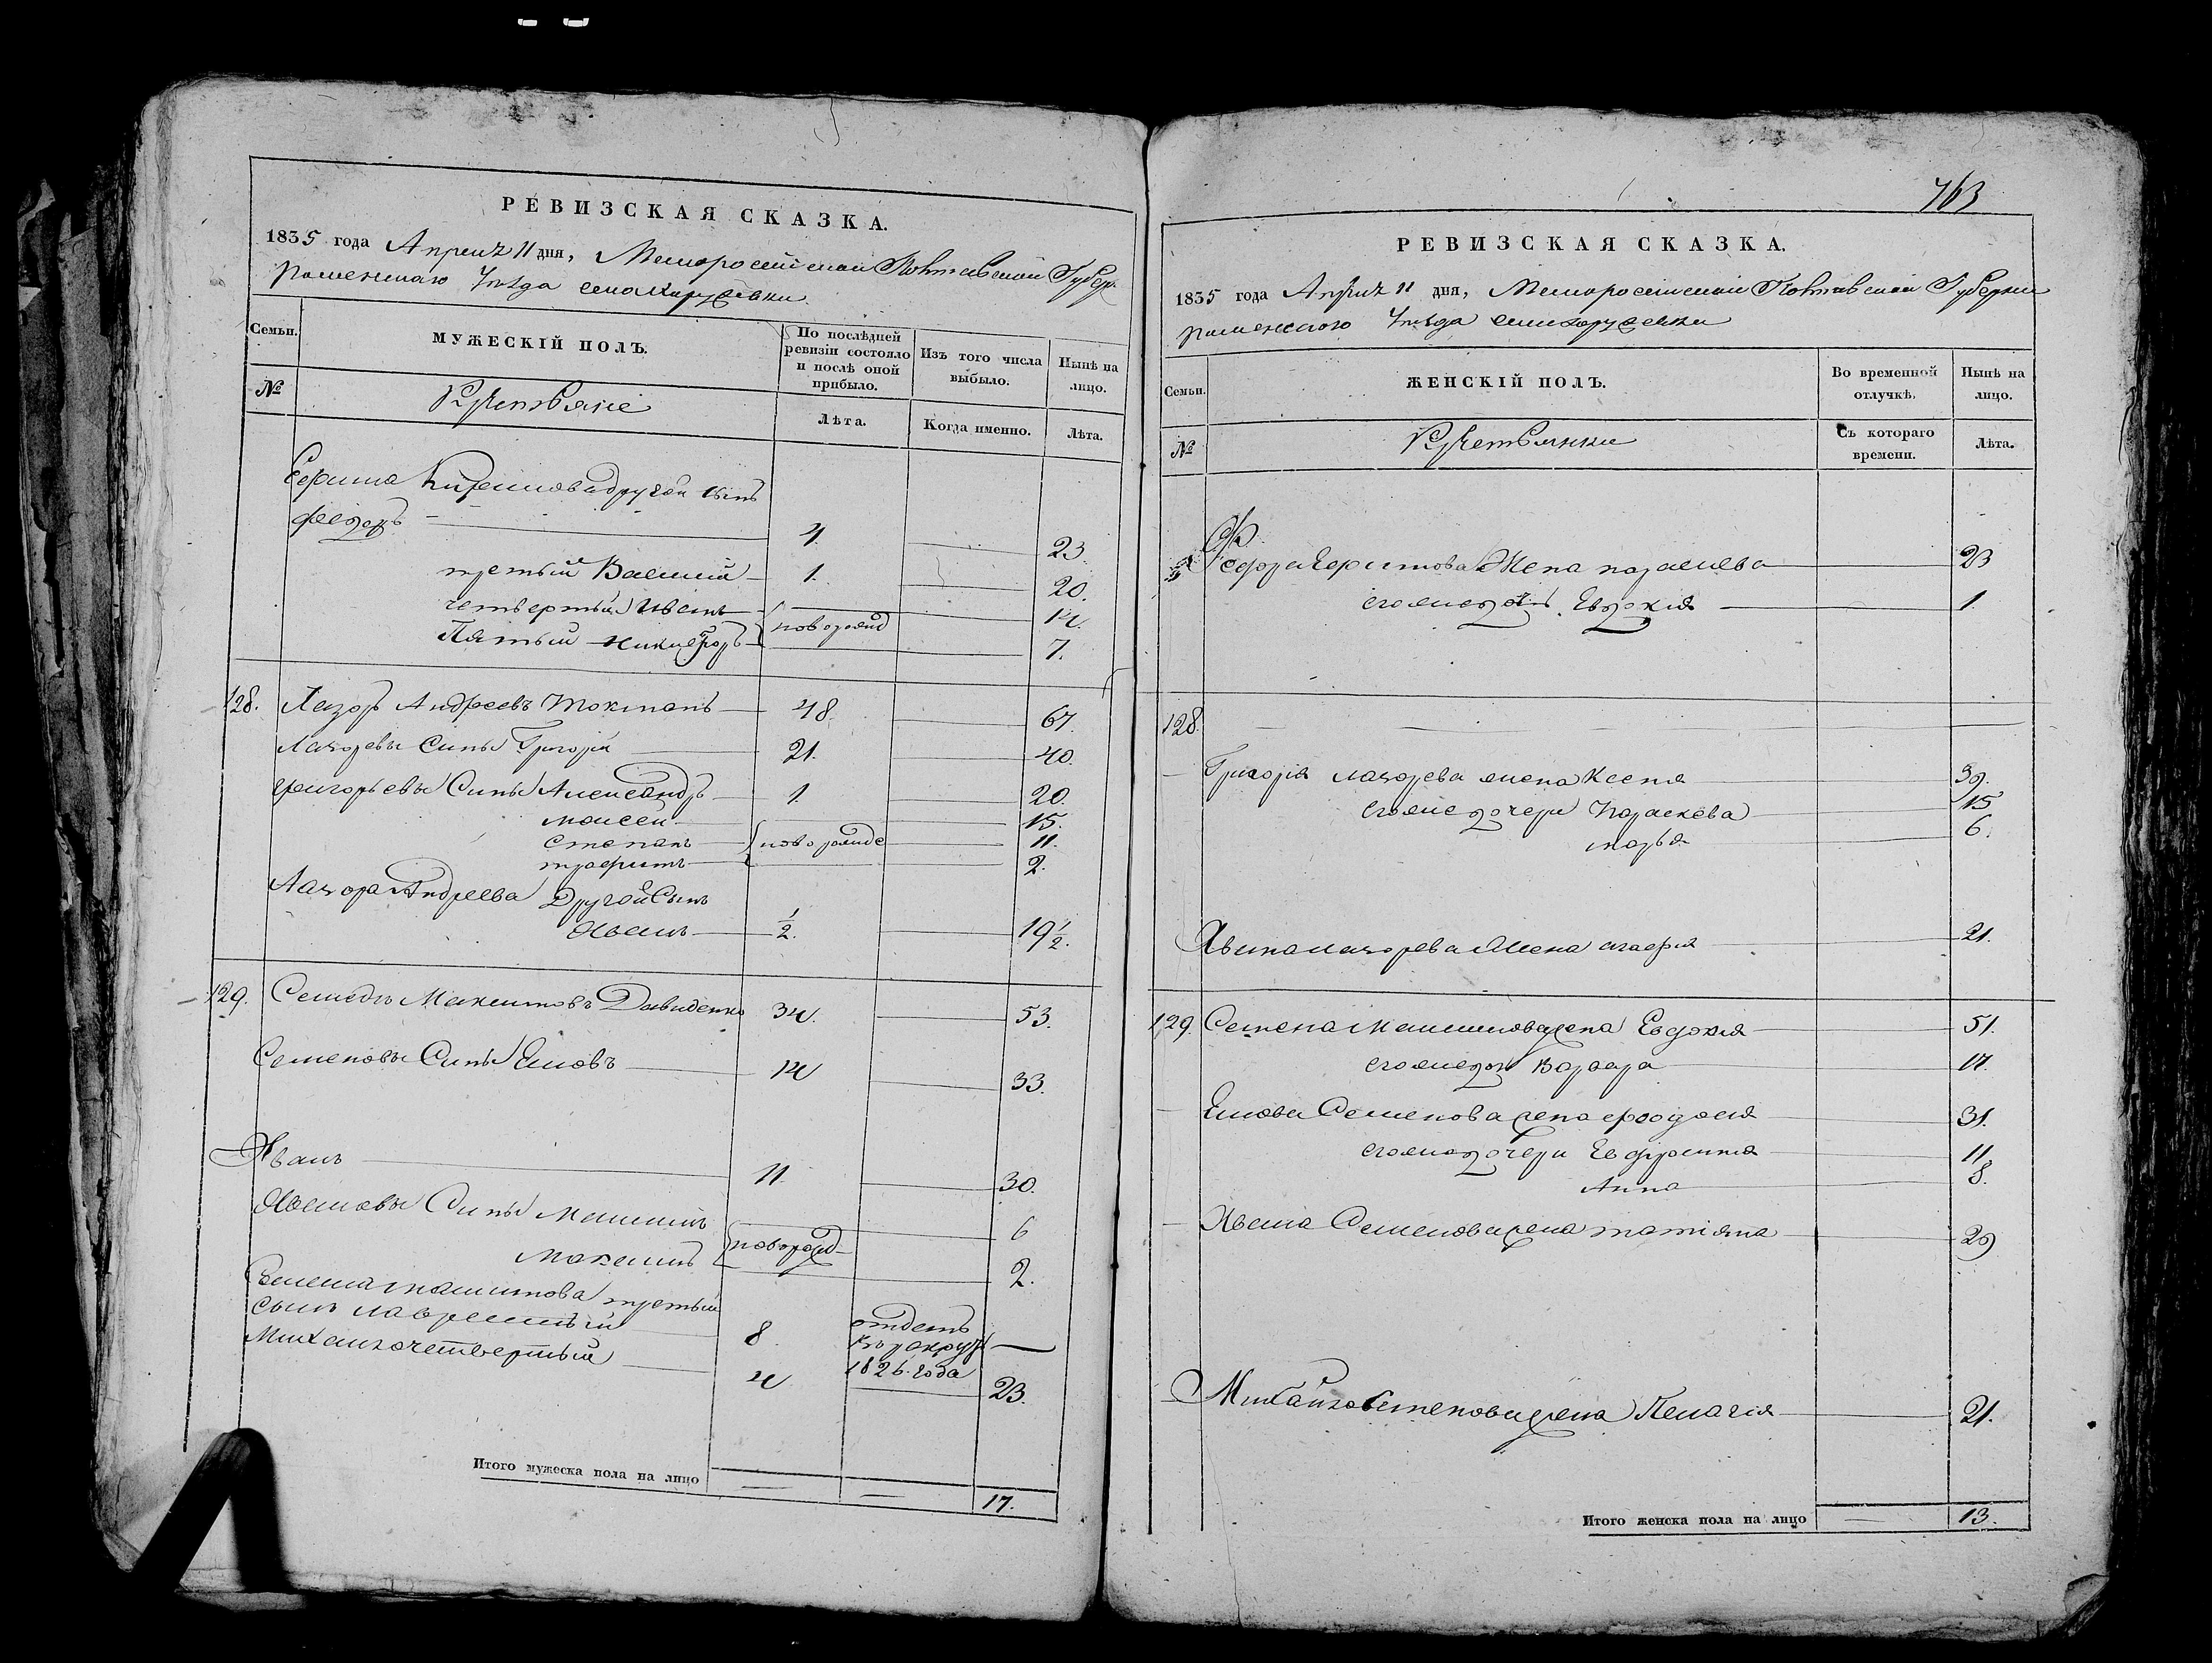 РЕВИЗСКАЯ СКАЗКА.
1835 года Апреля 11 дня, Малоросейской Полтавской Губер.
роменскаго уезда села Хоружевки
Семьи.
МУЖЕСКІЙ ПОЛЪ.
По послѣдней ревизіи состояло и послѣ оной прибыло.
Изъ того числа выбыло.
Нынѣ на лицо.
№
Крестьяне
Лѣта.
Когда именно.
Лѣта.
Ефима другой сынъ
федоръ 4. 23
третый Василий 1. 20.
четвертый Иванъ 14.
новорожд
Пятый Никифоръ 7.
128. Лазоръ Андреевъ Токманъ 48. 67.
Лазоревы Сины Григорий 21. 40.
григорьевы Сины Александръ 1. 20.
моисей 15.
степанъ новорожде 11.
трофимъ 2.
Лазора Андреева Другой Сынъ
Иванъ 1/2. 19 1/2.
129. Семенъ Максимовъ Давиденко 34. 53.
Семеновы Сины Яковъ 14 33.
Иванъ 11. 30.
Ивановы Сины 6
новорожд
Максимъ 2.
Семена третый
сынъ лаврентый 8. отданъ
въ рекруты
1826. года
Михайло четвертый 4 23.
Итого мужеска пола на лицо 17.
763
РЕВИЗСКАЯ СКАЗКА.
1835 года Апреля 11 дня, Малоросейской Полтавской Губернии
роменского уезда села хоружевки
Семьи.
ЖЕНСКІЙ ПОЛЪ.
Во временной отлучкѣ.
Нынѣ на лицо.
№
Крестьянки
Съ котораго времени.
Лѣта.
Федора Ефимова Жена параскева 23
егожедочь Евдокия 1.
128.
Григория лазорева жена Ксеня 39.
егоже дочери Параскева 15
марья 6.
Ивана лазорева Жена агафия 21.
129. Семена Максимова жена Евдокия 51.
егожедочь Варвара 17.
Якова Семенова жена феодосия 31.
егоже дочери Евфросиния 11
Анна 8.
Ивана Семенова жена татияна 29
Михайла Семенова жена Пелагия 21.
Итого женска пола на лицо 13.